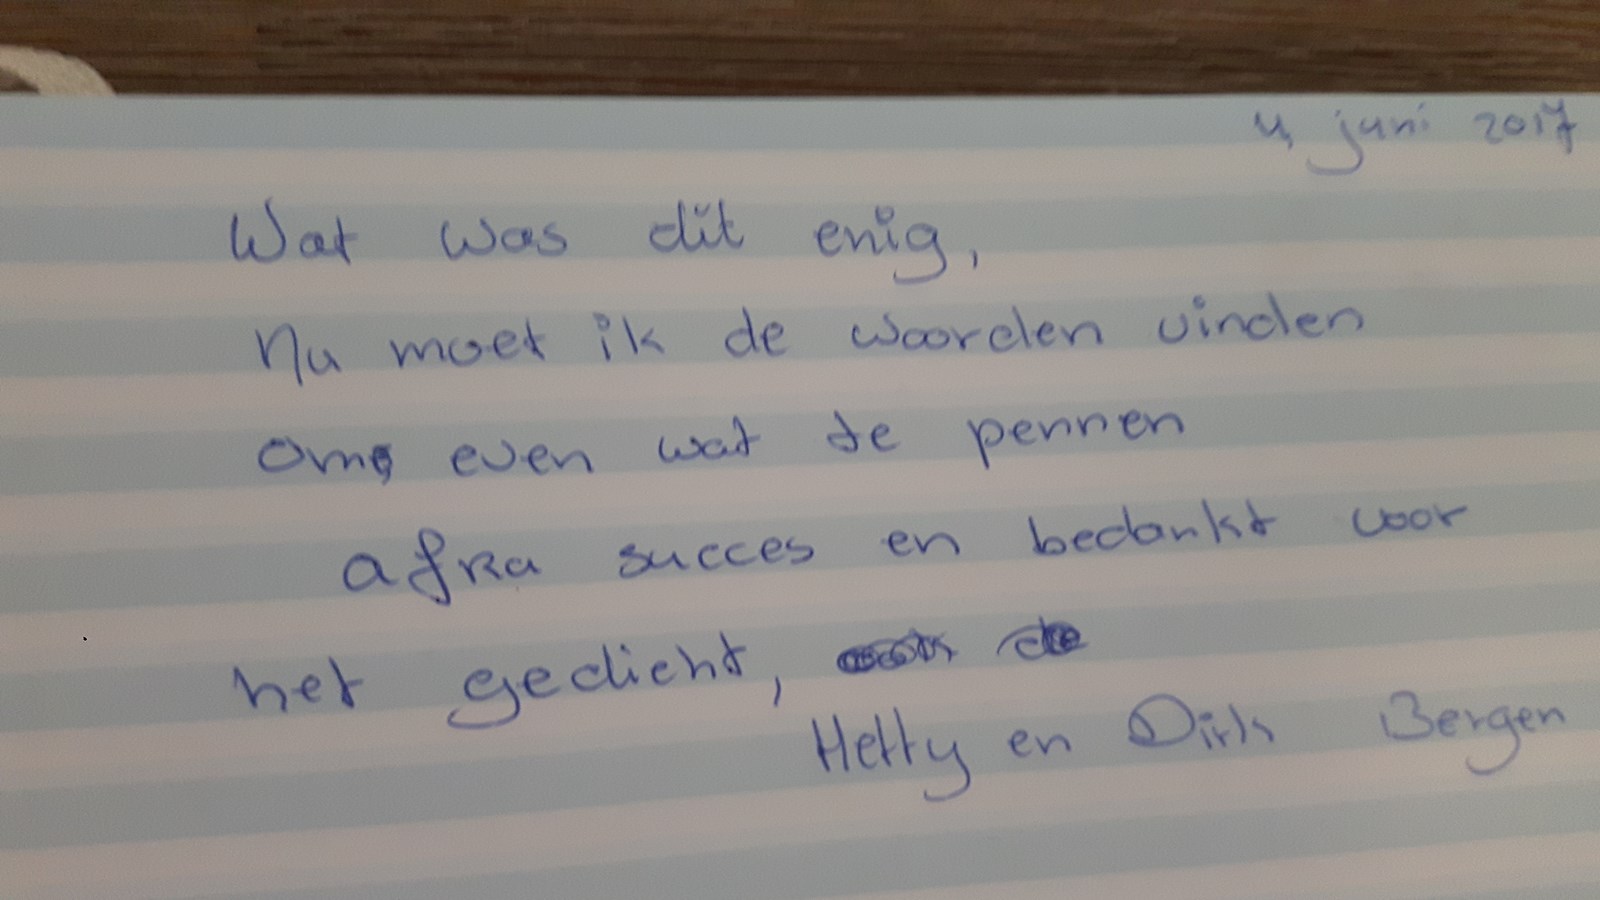 4 juni 2017
Wat was dit enig,
Nu moet ik de woorden vinden
om even wat te pennen
afra succes en bedankt voor
het gedicht,
Hetty en Dirk Bergen